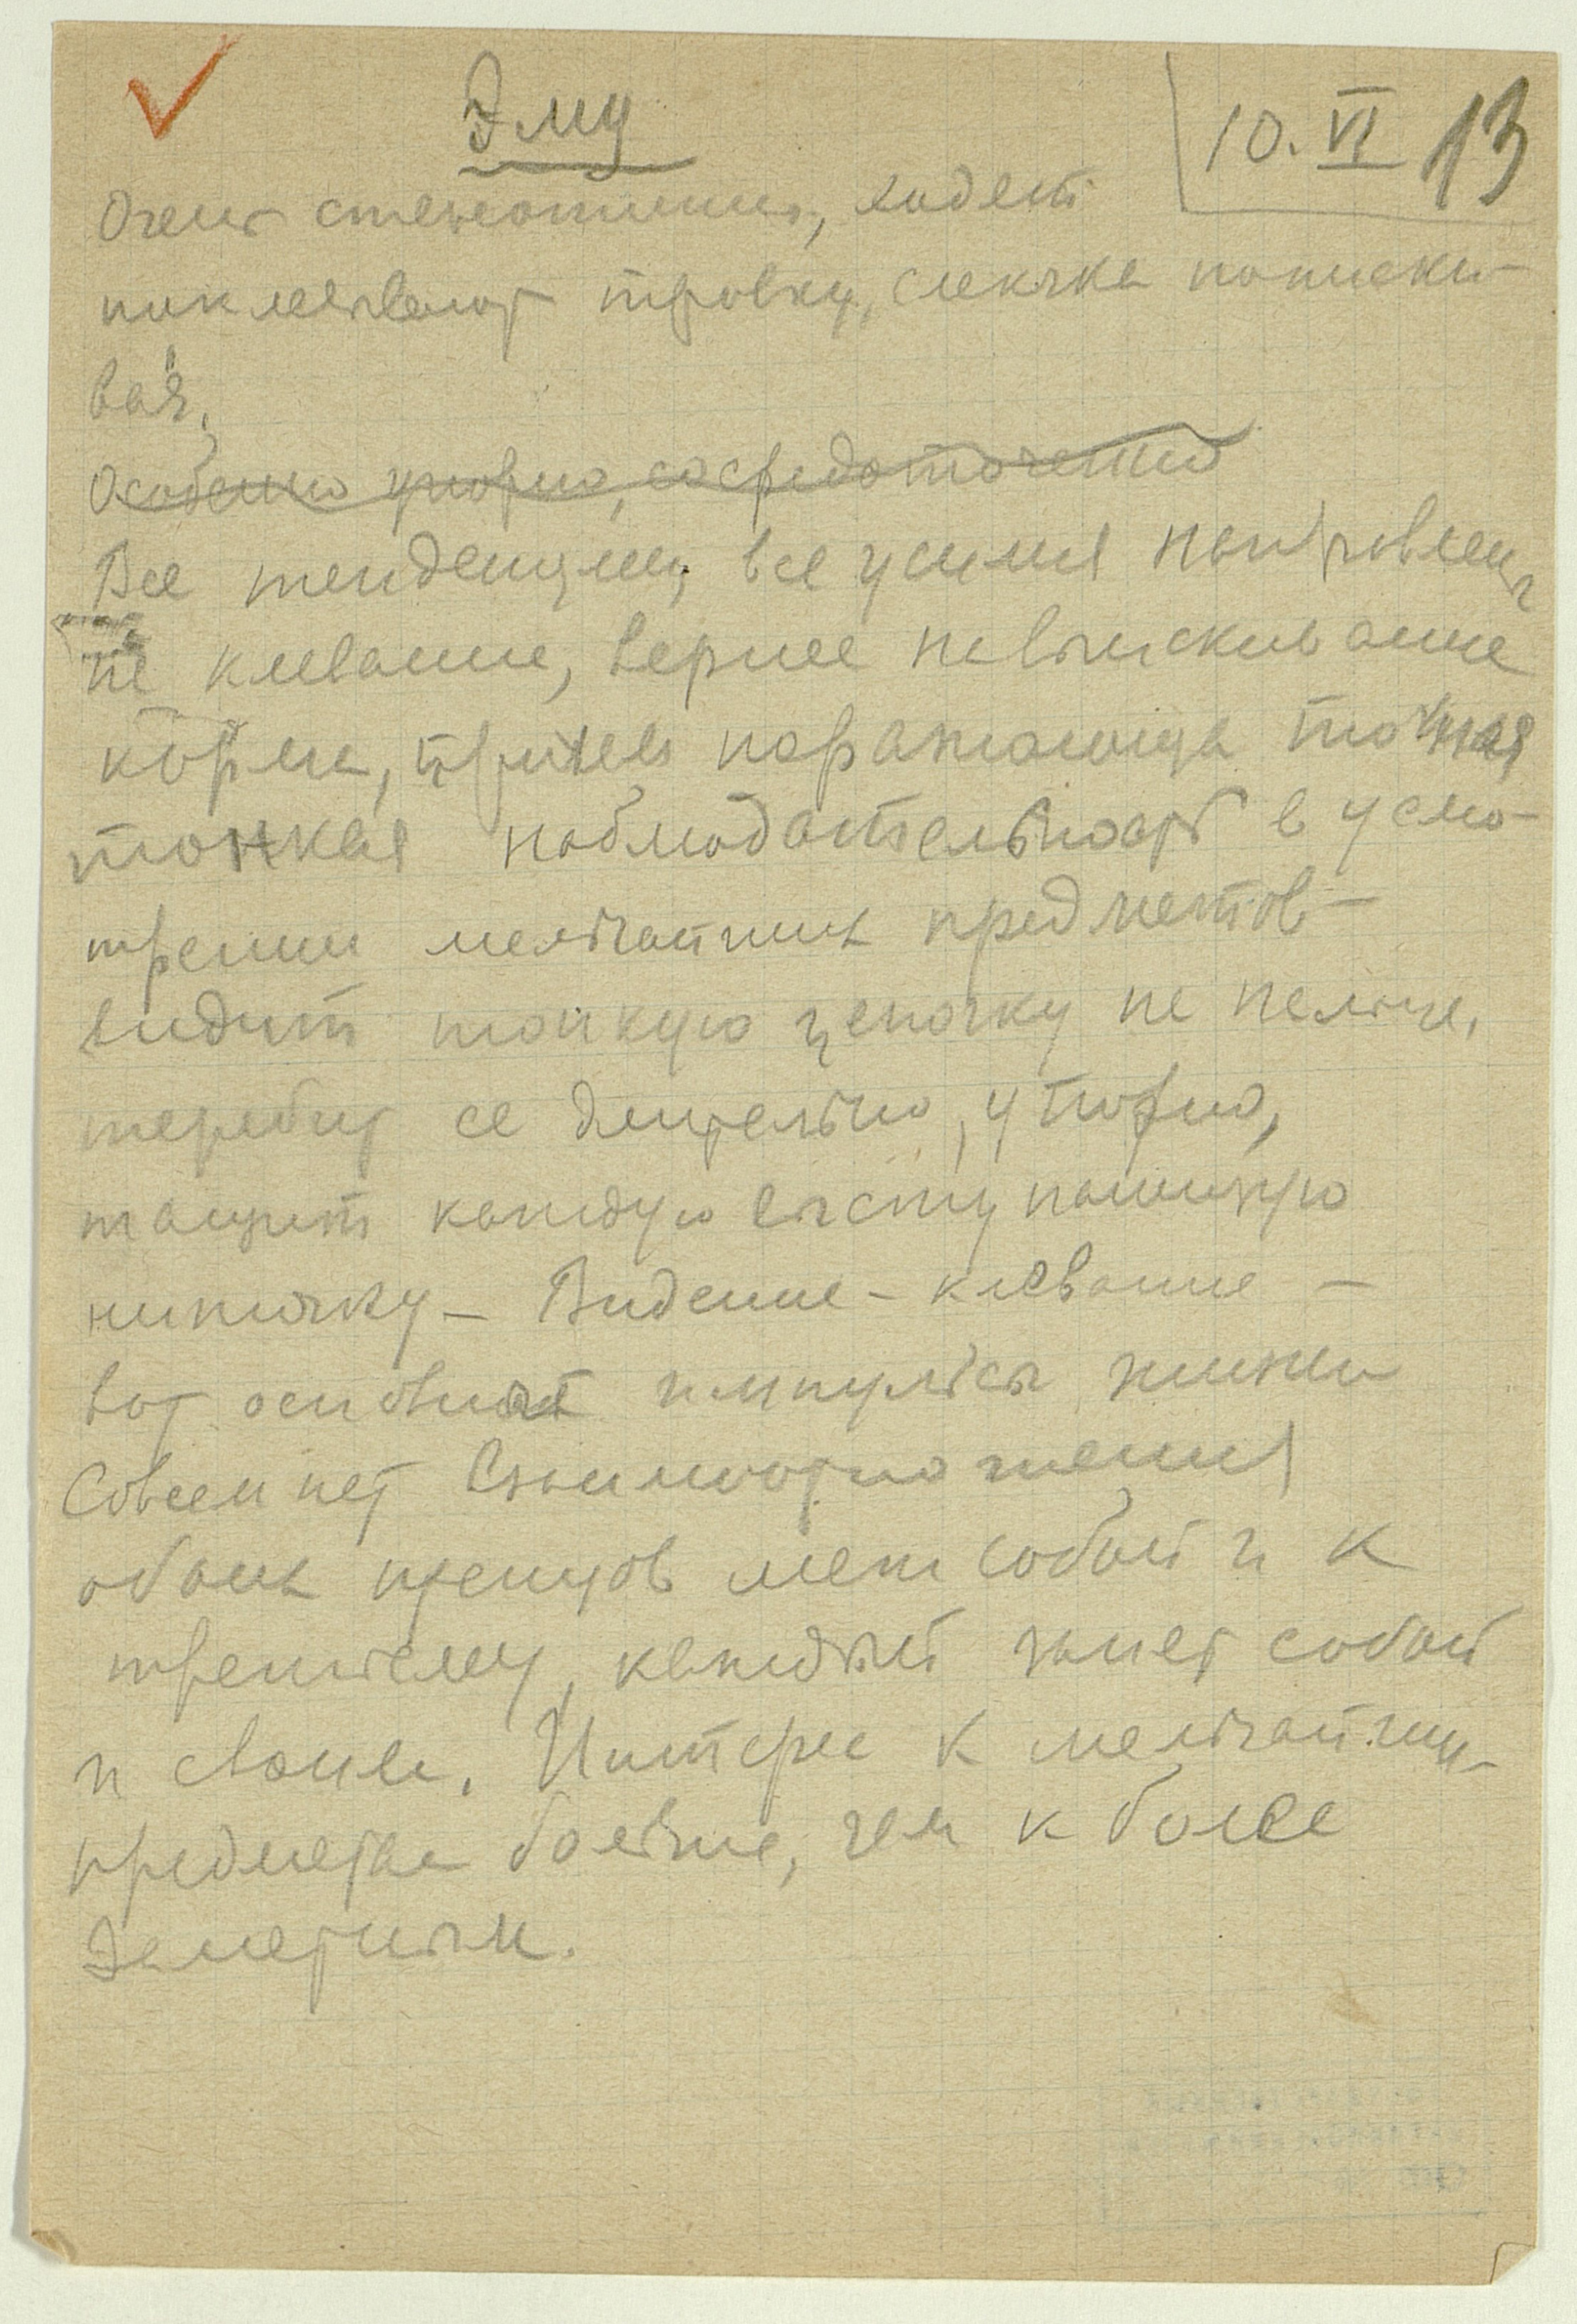 Эму
10.VI 13
Очень степенотипны, ходят
поклевывают травку, слегка пописки-
вая.
Особенно упорно, сосредоточенно
Все тенденции, все усилия направлены
на клевание, вернее на выискивание
корма, причем поражающая точная
тонкая наблюдательность в усмо-
трении мельчайших предметов –
видит тонкую цепочку на пальце,
теребит ее длительно, упорно,
тащит каждую выступающую
ниточку – Видение – клевание –
вот основные импульсы жизни
Совсем нет взаимоотношения
обоих птенцов меж собой и к
третьему, каждый занят собой
и своим. Интерес к мельчайшим
предметам больше, чем к более
заметным.